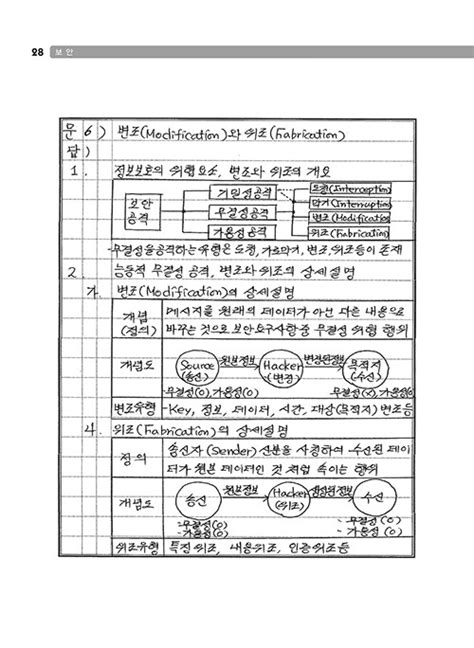 28 보 안
문 6) 변조(Modification)와 위조(Fabrication)
답)
1. 정보보호의 위협요소, 변조와 위조의 개요
보안 공격
기밀성공격
무결성공격
가용성공격
도청(Interception)
막기(Interruption)
변조(Modification)
위조(Fabrication)
-무결성을 공격하는 유형은 도청, 가로막기, 변조, 위조등이 존재
2. 능동적 무결성 공격, 변조와 위조의 상세설명
가. 변조(Modification)의 상세설명
개념 (정의)
메시지를 원래의 데이터가 아닌 다른 내용으로
바꾸는 것으로 보안요구사항중 무결성 위협 행위
개념도
Source (송신) 원본정보 Hacker (변경) 변경된정보 목적지 (수신)
무결성(O) 가용성(O) 무결성(X), 가용성(O)
변조유형 -Key, 정보, 데이터, 시간, 대상(목적지) 변조등
나. 위조(Fabrication)의 상세설명
정의
송신자(Sender) 신분을 사칭하여 수신된 데이
터가 원본 데이터인 것 처럼 속이는 행위
개념도
송신 원본정보 Hacker (위조) 정보 수신
-무결성(O) -무결성(O)
-가용성(O) -가용성(O)
위조유형 특징위조, 내용위조, 인증위조등